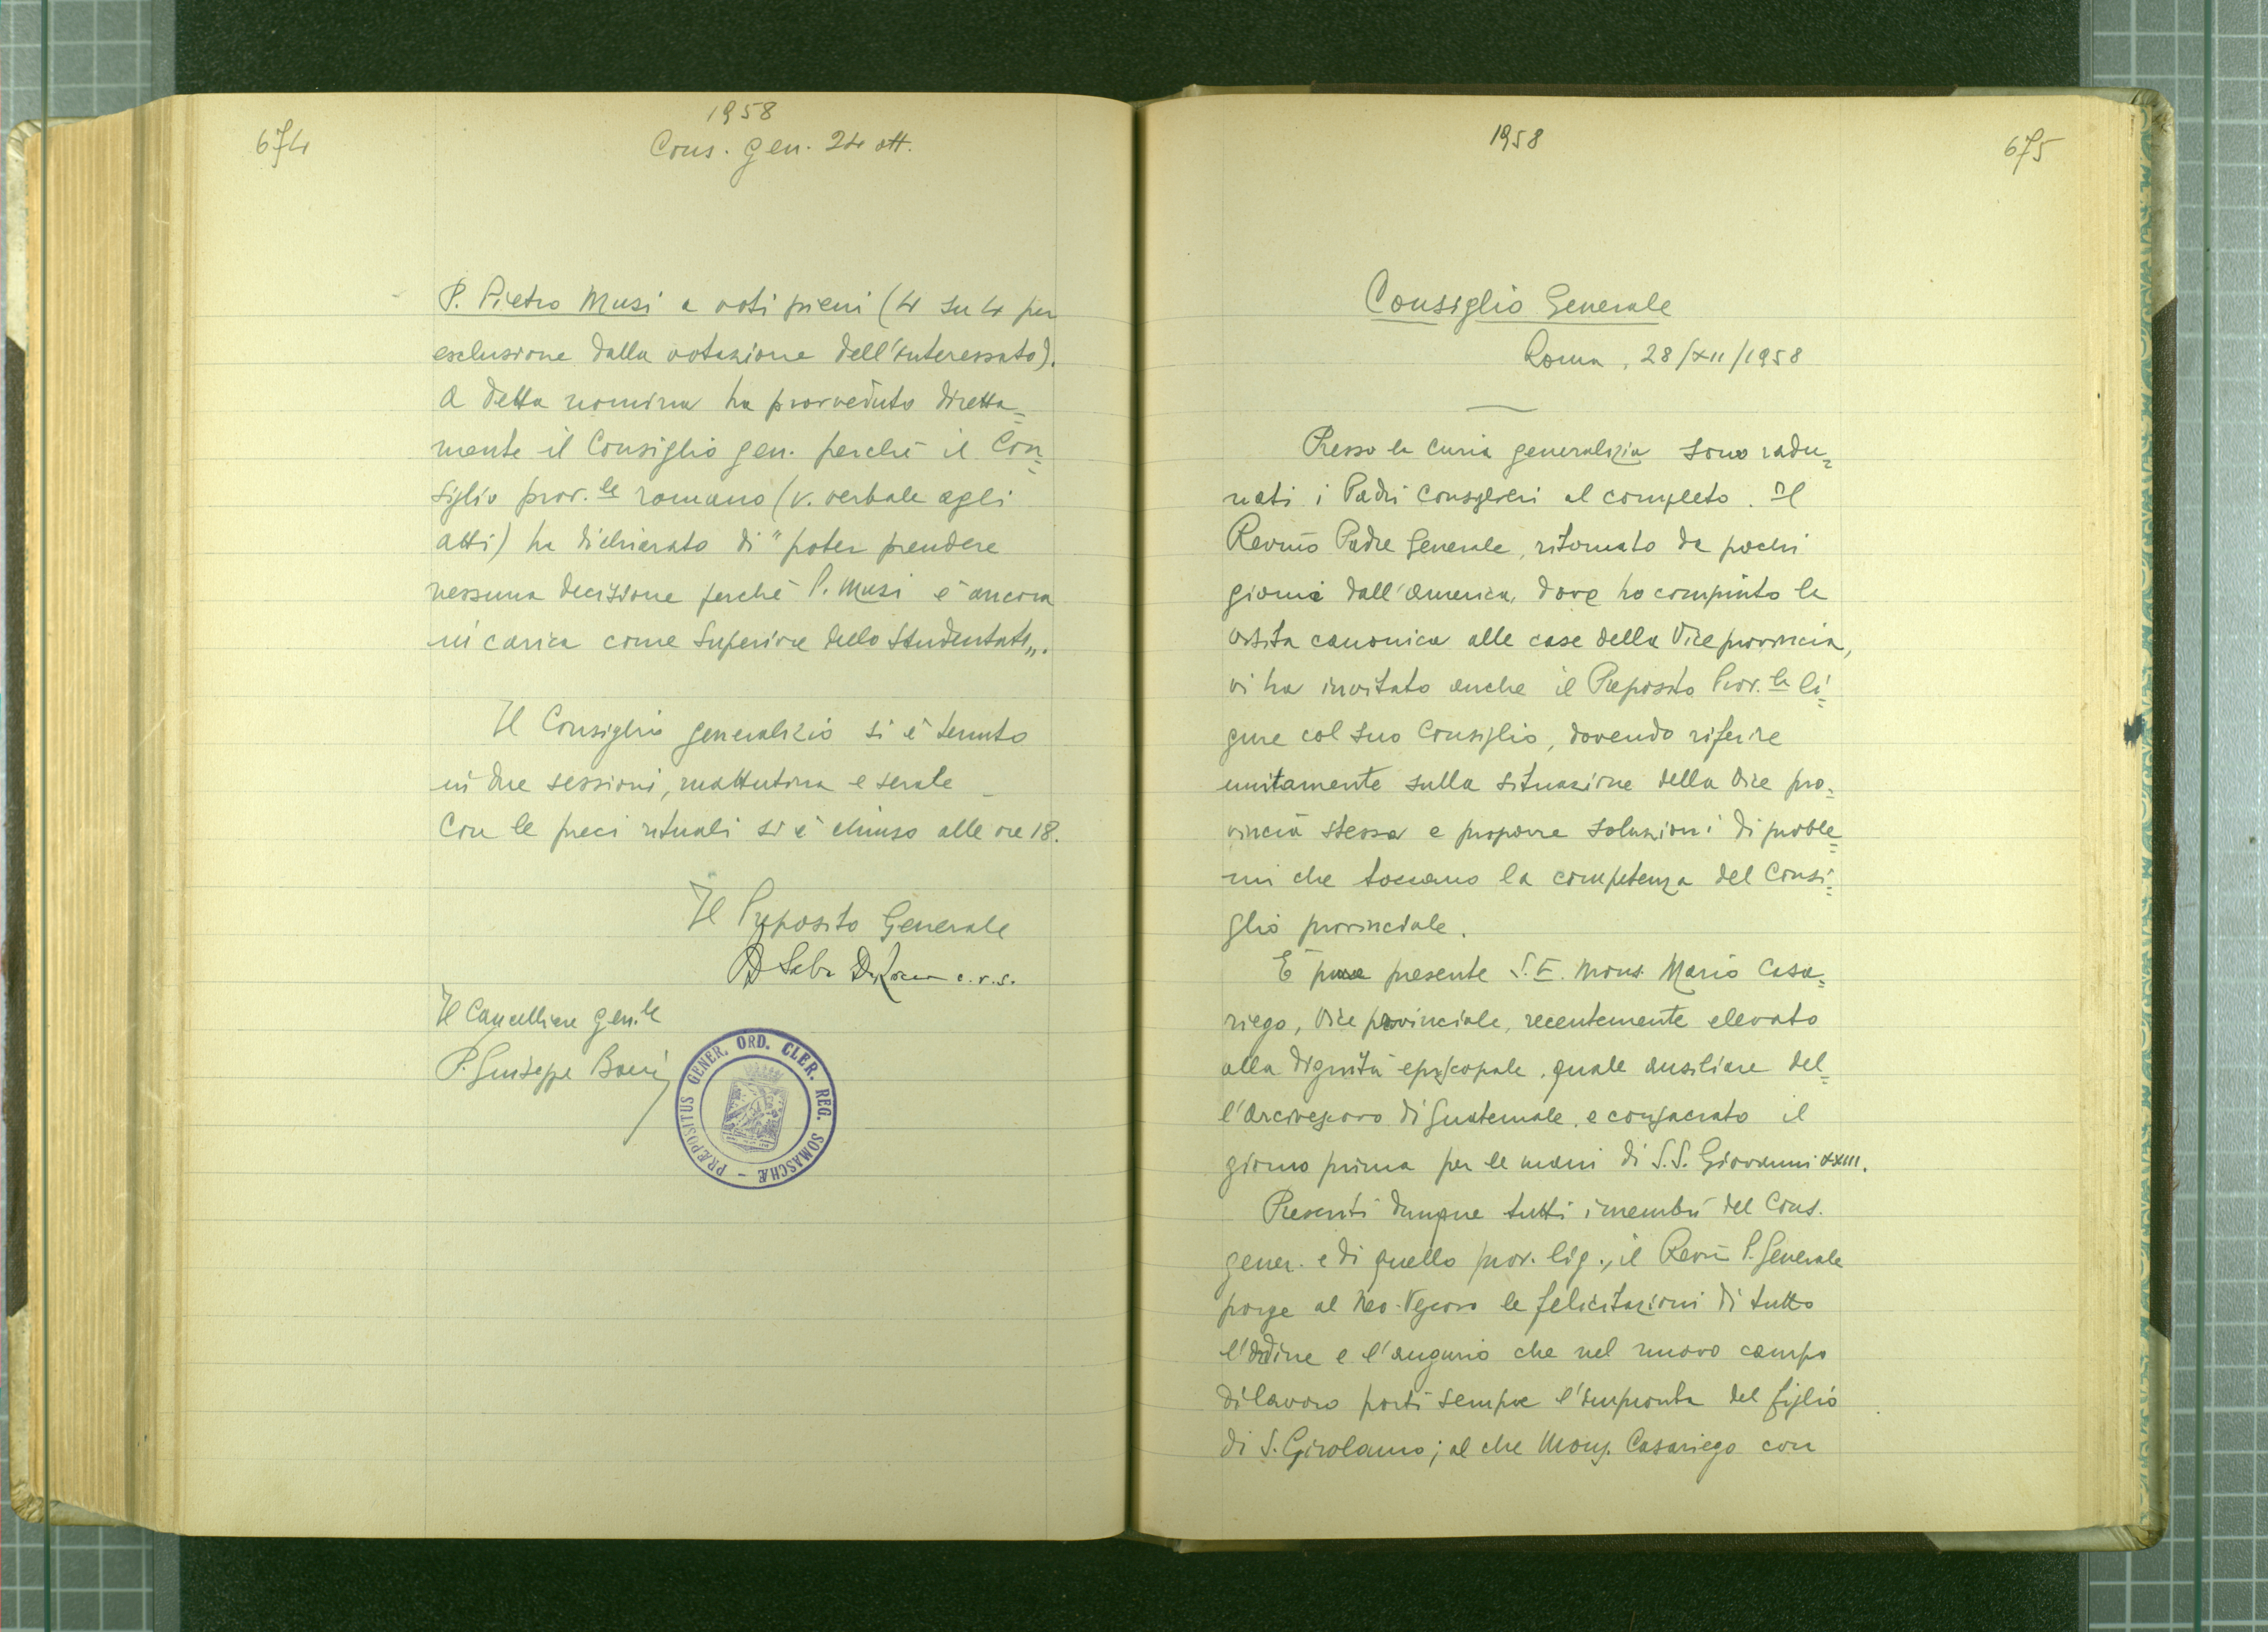 674
1958
Cons. gen. 24 ott.
P. Pietro Musi a voti pieni (4 su 4 per
esclusione dalla votazione dell'interessato).
A detta nomina ha provveduto diretta=
mente il Consiglio gen. perchè il Con=
siglio prov.le romano (v. verbale agli
atti) ha dichiarato di "poter prendere
nessuna decisione perchè P. Musi è ancora
in carica come Superiore dello Studentato„.
Il Consiglio generalizio si è tenuto
in due sessioni, mattutina e serale _
Con le preci rituali si è chiuso alle ore 18.
Il Preposito Generale
D Saba De Rocco c.r.s.
Il Cancelliere Gen.le
P. Giuseppe Boeri
PRÆPOSITUS GENER. ORD. CLER. REG. SOMASCHÆ -
1958
675
Consiglio Generale
Roma, 28/XII/1958
Presso la Curia generalizia sono radu=
nati i Padri Consiglieri al completo. Il
Rev.mo Padre Generale, ritornato da pochi
giorni dall'America, dove ha compiuto la
visita canonica alle case della Vice provincia,
vi ha invitato anche il Preposito Prov.le li=
gure col suo Consiglio, dovendo riferire
unitamente sulla situazione della Vice pro=
vincia stessa e proporre soluzioni di proble=
mi che toccano la competenza del Consi=
glio provinciale.
È pure presente S.E. Mons. Mario Casa=
riego, Vice provinciale, recentemente elevato
alla dignità episcopale, quale ausiliare del=
l'Arcivescovo di Guatemala, e consacrato il
giorno prima per le mani di S.S. Giovanni XXIII.
Presenti dunque tutti i membri del Cons.
gener. e di quello prov. lig., il Rev.m P. Generale
porge al Neo-Vescovo le felicitazioni di tutto
l'Ordine e l'augurio che nel nuovo campo
di lavoro porti sempre l'impronta del figlio
di S. Girolamo; al che Mons. Casariego con